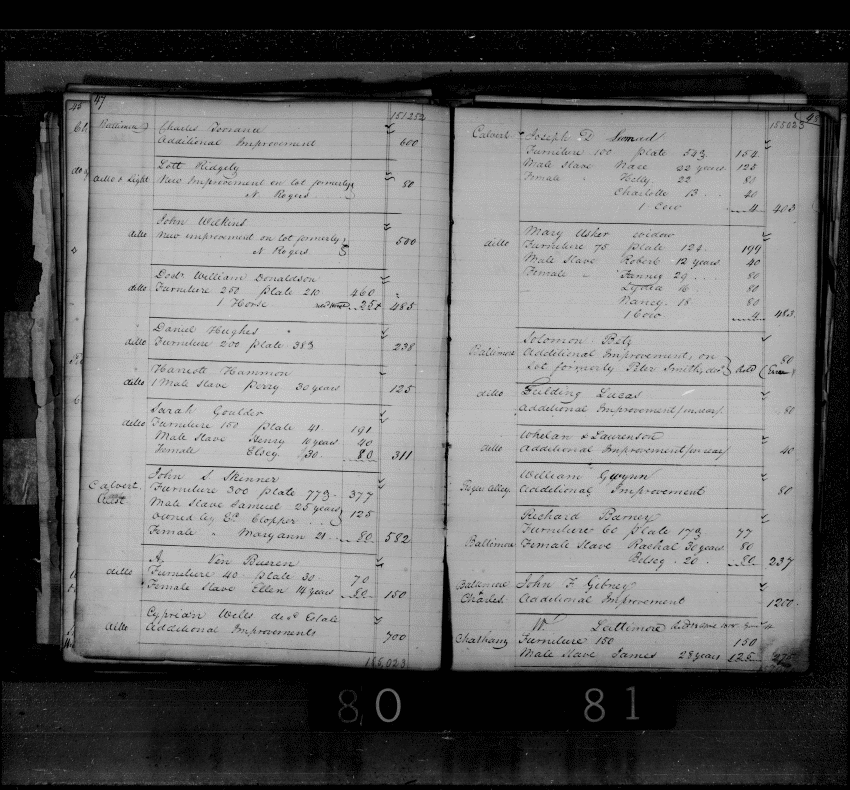 47
151252
Baltimore Charles Torrance
Additional Improvement 600
Lott Ridgely
New Improvement on lot formerly 80
N. Rogers
John Wilkins
ditto New improvement on lot formerly 500
N Rogers
William Donaldson
ditto Furniture 250 plate 210 460
1 Horse 25 485
Daniel Hughes
ditto Furniture 200 plate 383 238
Harriott Hammon
ditto 1 Male Slave Perry 30 years 125
Sarah Goulder
ditto Furniture 150 plate 41 191
Male Slave Henry 10 years 40
Female Elsey 30 80 311
John S Skinner
Calvert Furniture 300 plate 773 377
Male Slave Samuel 25 years 125
owned by Clopper
Female " Maryann 21 80 582
A. Van Bueren
ditto Furniture 40 plate 30 70
Female Slave Ellen 14 years 80 150
Cyprian Wells Estate
ditto Additional Improvements 700
155,023
48
155023
Calvert Joseph D
Furniture 100 plate 543 154
Male Slave 22 years 125
Female " Hetty 22 80
Charlotte 13 40
1 Cow 4 403
Mary Usher widow
ditto Furniture 75 plate 124 199
Male Slave Robert 12 years 40
Female " Fanney 29 80
Lydia 16 80
Nancy 18 80
1 Cow 4 483
Solomon Betz
Baltimore Additional Improvement, on 80
Lot formerly Peter Smith
ditto Fielding Lucas
Additional Improvement 80
Whelan & Laurenson
ditto Additional Improvement 40
William Gwynn
Alley Additional Improvement 80
Richard Barney
Furniture 60 plate 173 77
Baltimore Female Slave Rachal 30 years 80
Betsey 20 80 237
Baltimore John F Gibney
Charles Additional Improvement 1200
W. Lattimore
Chatham Furniture 150 150
Male Slave James 28 years 125 275
80
81